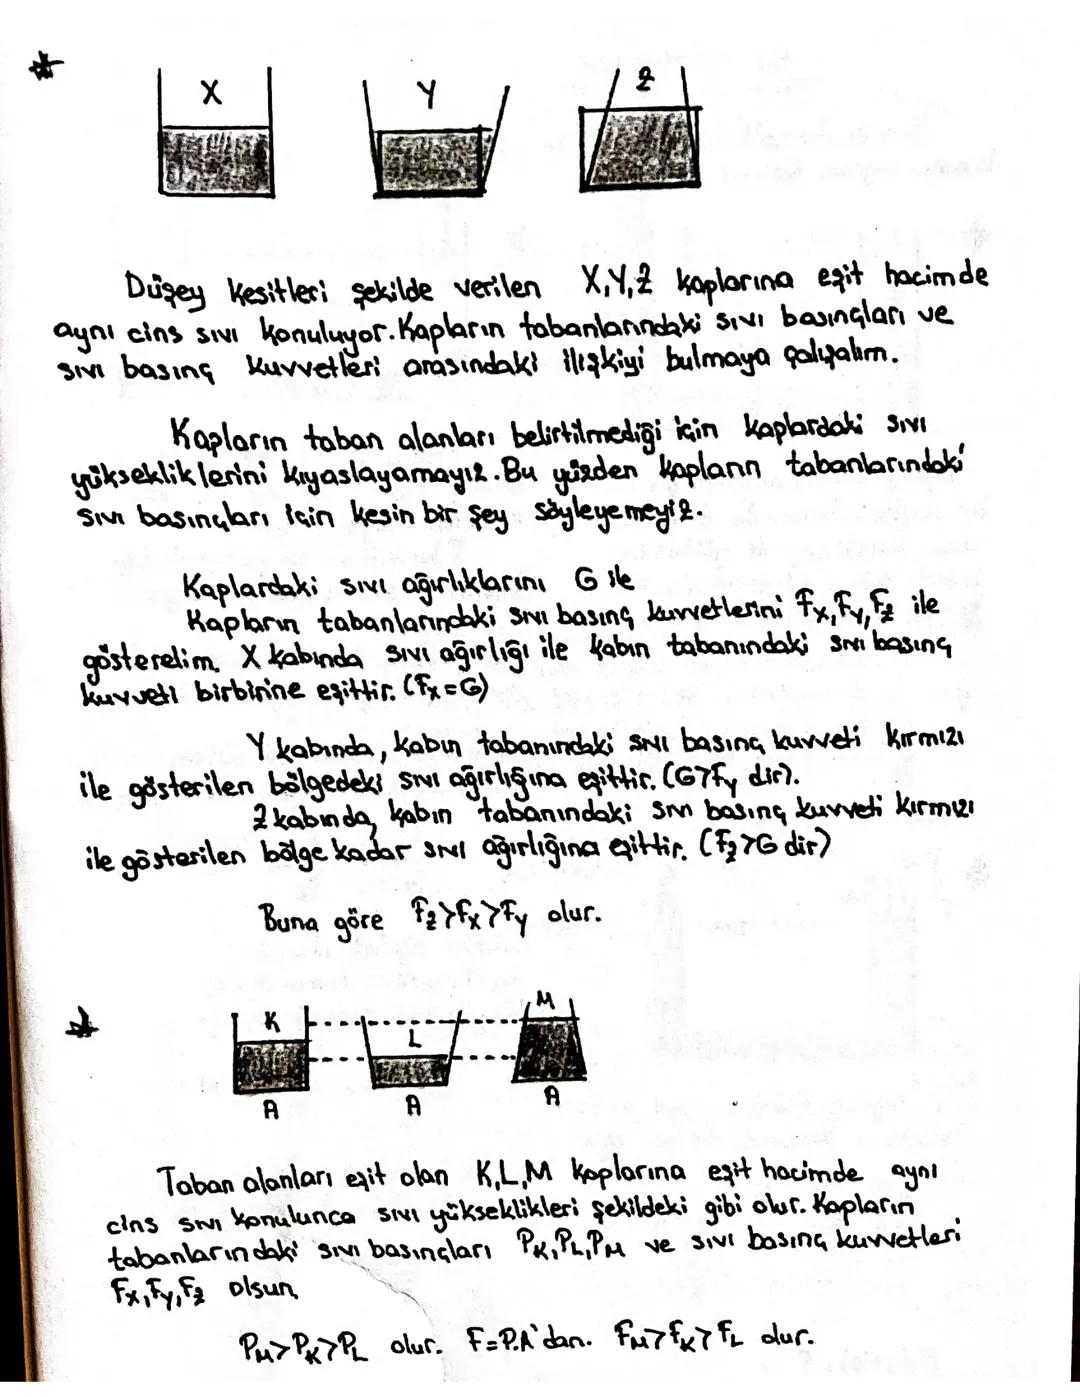 X Y Z
Düşey kesitleri şekilde verilen X,Y,Z kaplarına eşit hacimde
aynı cins sıvı konuluyor. Kapların tabanlarındaki sıvı basınçları ve
sıvı basınç kuvvetleri arasındaki ilişkiyi bulmaya çalışalım.
Kapların taban alanları belirtilmediği için kaplardaki sıvı
yüksekliklerini kıyaslayamayız. Bu yüzden kapların tabanlarındaki
sıvı basınçları için kesin bir şey söyleyemeyiz.
Kaplardaki sıvı ağırlıklarını G ile
Kapların tabanlarındaki sıvı basınç kuvvetlerini Fx, Fy, Fz ile
gösterelim. X kabında sıvı ağırlığı ile kabın tabanındaki sıvı basınç
kuvveti birbirine eşittir. (Fx=G)
Y kabında, kabın tabanındaki sıvı basınç kuvveti kırmızı
ile gösterilen bölgedeki sıvı ağırlığına eşittir. (G>Fy dir).
Z kabında, kabın tabanındaki sıvı basınç kuvveti kırmızı
ile gösterilen bölge kadar sıvı ağırlığına eşittir. (Fz>G dir)
Buna göre Fz>Fx>Fy olur.
K L M
A A A
Taban alanları eşit olan K,L,M kaplarına eşit hacimde aynı
cins sıvı konulunca sıvı yükseklikleri şekildeki gibi olur. Kapların
tabanlarındaki sıvı basınçları PK, PL, PM ve sıvı basınç kuvvetleri
Fx, Fy, Fz olsun
PM>PK>PL olur. F=P.A'dan. FM>FK>FL olur.